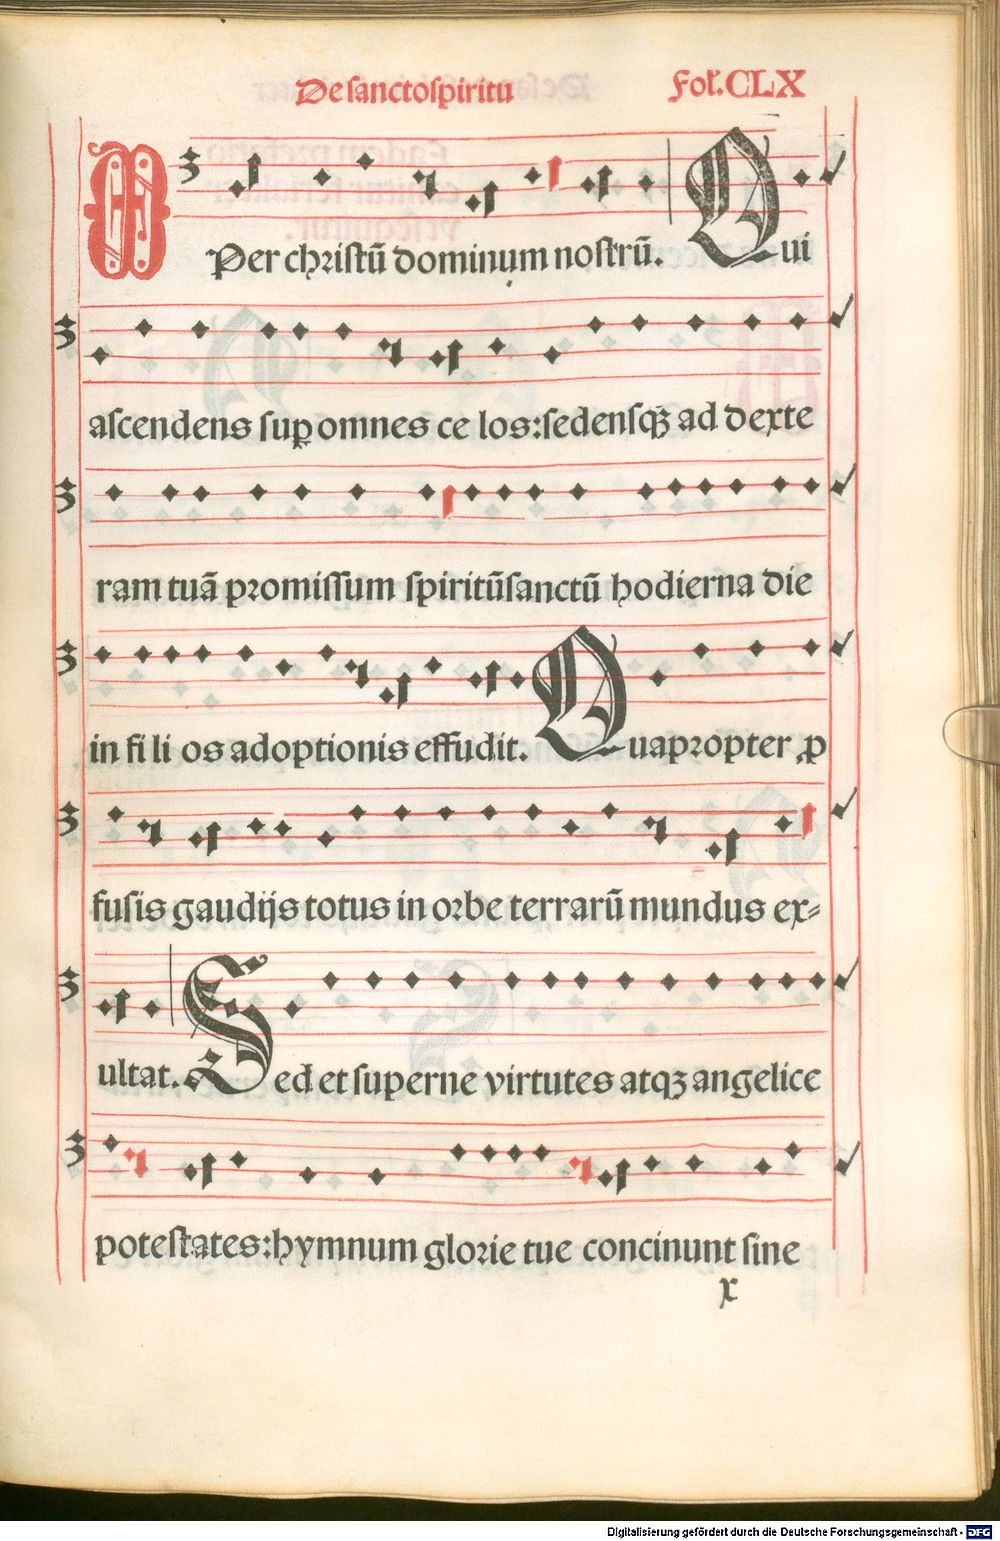 De sanctospiritu Fol. CLX
Per christū dominum nostrū. Qui
ascendens suꝑ omnes ce los: sedensqꝫ ad dexte
ram tuā promissum spiritūsanctū hodierna die
in fi li os adoptionis effudit. Quapropter ꝓ
fusis gaudijs totus in orbe terrarū mundus ex⸗
ultat. Sed et superne virtutes atqꝫ angelice
potestates: hymnum glorie tue concinunt sine
x
Digitalisierung gefördert durch die Deutsche Forschungsgemeinschaft - DFG